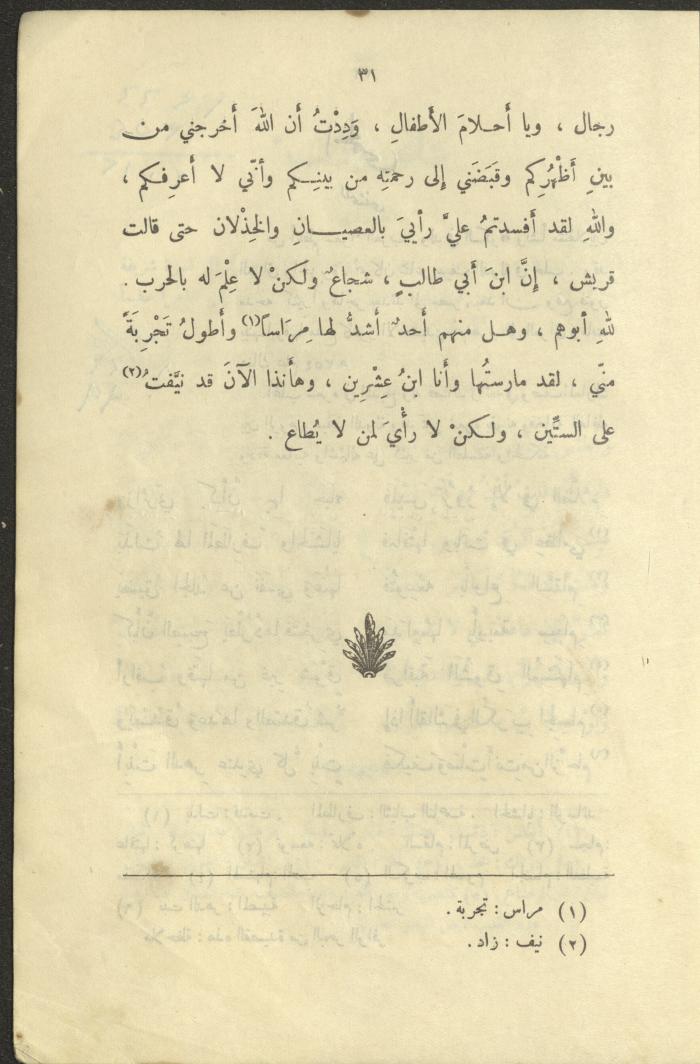 ٣١
رجال ، ويا أَحـلامَ الأَطفالِ ، وَدِدْتُ أَن اللهَ أَخرجني من
بينِ أَظْهُرِكم وقَبَضَني إلى رحمتِه من بينِـكم وأنّي لا أَعرِفـكم ،
واللهِ لقد أَفسدتمُ عليَّ رأْييَ بالعصيـــانِ والخِذْلان حتى قالت
قريش ، إِنَّ ابنَ أَبي طالبٍ ، شجاعٌ ولكنْ لا عِلْمَ له بالحرب .
للهِ أَبوهم ، وهـل منهم أَحدٌ أَشدُّ لها مِرَاساً(١) وأَطولُ تَجْرِبَةً
منّي ، لقد مارستُها وأَنا ابنُ عِشْرِين ، وهأَنذا الآنَ قد نيَّفتُ(٢)
على الستِّين ، ولـكنْ لا رأْيَ لمن لا يُطاع .
(١) مراس : تجربة .
(٢) نيف : زاد .